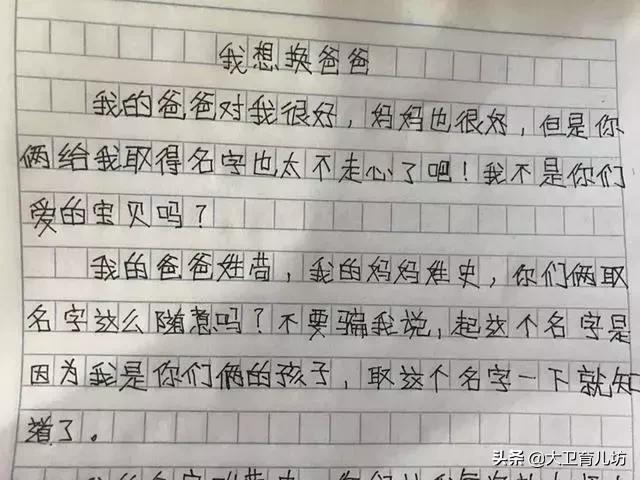 我想换爸爸
我的爸爸对我很好，妈妈也很好，但是你
俩给我取得名字也太不走心了吧！我不是你们
爱的宝贝吗？
我的爸爸姓，我的妈妈姓史，你们俩取
名字这么随意吗？不要骗我说，起这个名字是
因为我是你们俩的孩子，取这个名字一下就知
道了。
头条 @大卫育儿坊